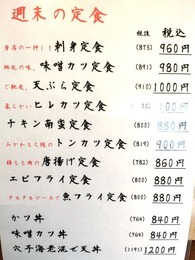 週末の定食
税抜 税込
当店の一押し! 刺身定食 (873) 960円
味噌カツ定食 (891) 980円
ご馳走、天ぷら定食 (910) 1000円
柔らかい ヒレカツ定食
チキン南蛮定食 (800) 880円
トンカツ定食 (819) 900円
唐揚げ定食 (782) 860円
エビフライ定食 (800) 880円
タルタルソースで 魚フライ定食 (800) 880円
かつ丼 (764) 840円
味噌カツ丼 (764) 840円
穴子海老混ぜ天丼 (1191) 1200円